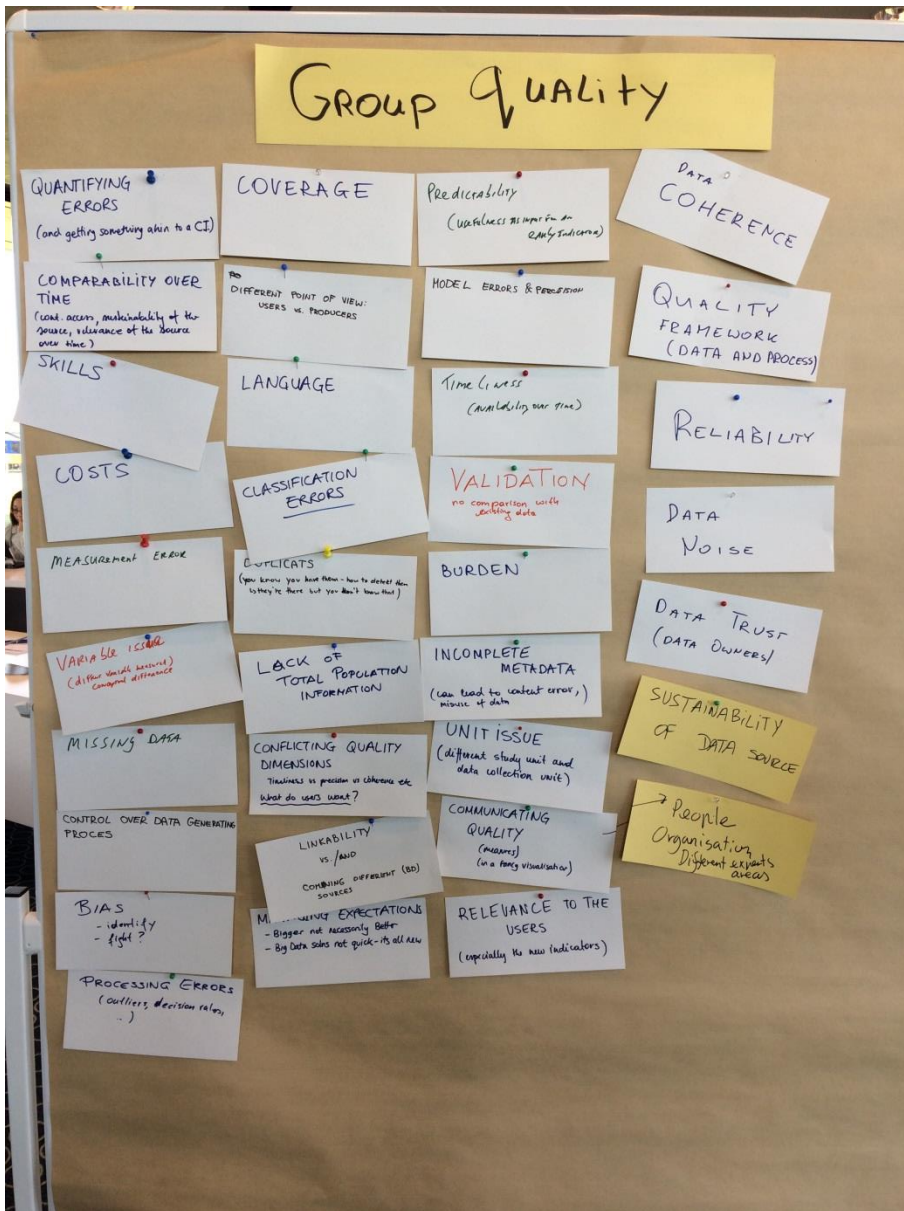 GROUP QUALITY
QUANTIFYING
ERRORS
(and getting something akin to a CI)
COMPARABILITY OVER
TIME
(cont. access, sustainability of the
source, relevance of the source
over time)
SKILLS
COSTS
MEASUREMENT ERROR
VARIABLE ISSUE
(differ variable measured)
conceptual difference
MISSING DATA
CONTROL OVER DATA GENERATING
PROCES
BIAS
- identify
- fight?
PROCESSING ERRORS
(outliers, decision rules,
..)
COVERAGE
DIFFERENT POINT OF VIEW:
USERS vs. PRODUCERS
LANGUAGE
CLASSIFICATION
ERRORS
DUPLICATS
(you know you have them - how to detect them
they're there but you don't know that)
LACK OF
TOTAL POPULATION
INFORMATION
CONFLICTING QUALITY
DIMENSIONS
Timeliness vs precision vs coherence etc
What do users want?
LINKABILITY
VS. /AND
COMBINING DIFFERENT (BD)
SOURCES
EXPECTATIONS
- Bigger not necessarily Better
- Big Data solns not quick - its all new
PREDICTABILITY
(usefulness as input for an
early indicator)
MODEL ERRORS & PERCEISION
TIMELINESS
(availability over time)
VALIDATION
no comparison with
existing data
BURDEN
INCOMPLETE
METADATA
(can lead to content error,
misuse of data)
UNIT ISSUE
(different study unit and
data collection unit)
COMMUNICATING
QUALITY
(measures)
(in a fancy visualisation)
RELEVANCE TO THE
USERS
(especially the new indicators)
DATA
COHERENCE
QUALITY
FRAMEWORK
(DATA AND PROCESS)
RELIABILITY
DATA
NOISE
DATA TRUST
(DATA OWNERS)
SUSTAINABILITY
OF DATA SOURCE
People
Organisation
Different experts
areas